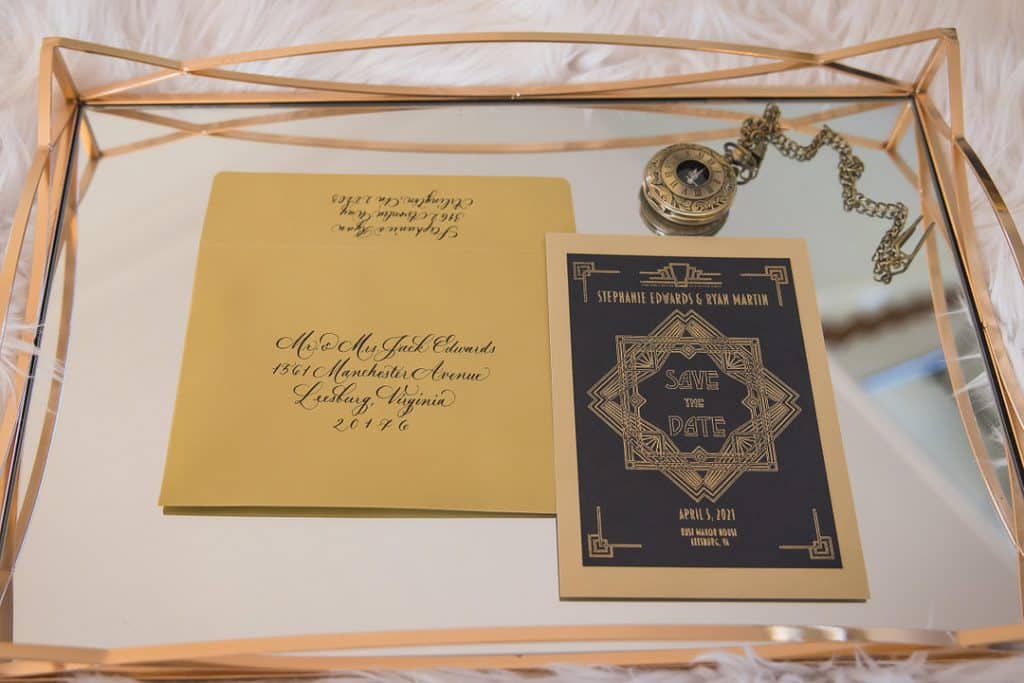 Stephanie Ryan
Arlington, Va 22203
Mr. & Mrs. Jack Edwards
1361 Manchester Avenue
Leesburg, Virginia
20176
STEPHANIE EDWARDS & RYAN MARTIN
SAVE
THE
DATE
APRIL 3, 2021
RUST MANOR HOUSE
LEESBURG, VA